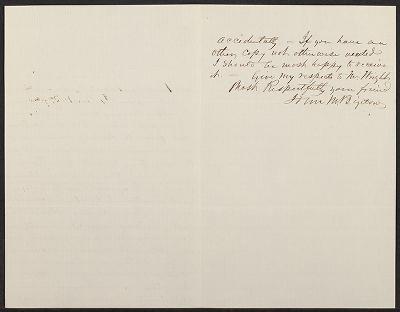 accidentally — If you have an
other copy not otherwise wanted
I should be most happy to receive
it — Give my respects to Mr Wright
Most Respectfully your friend
Wm